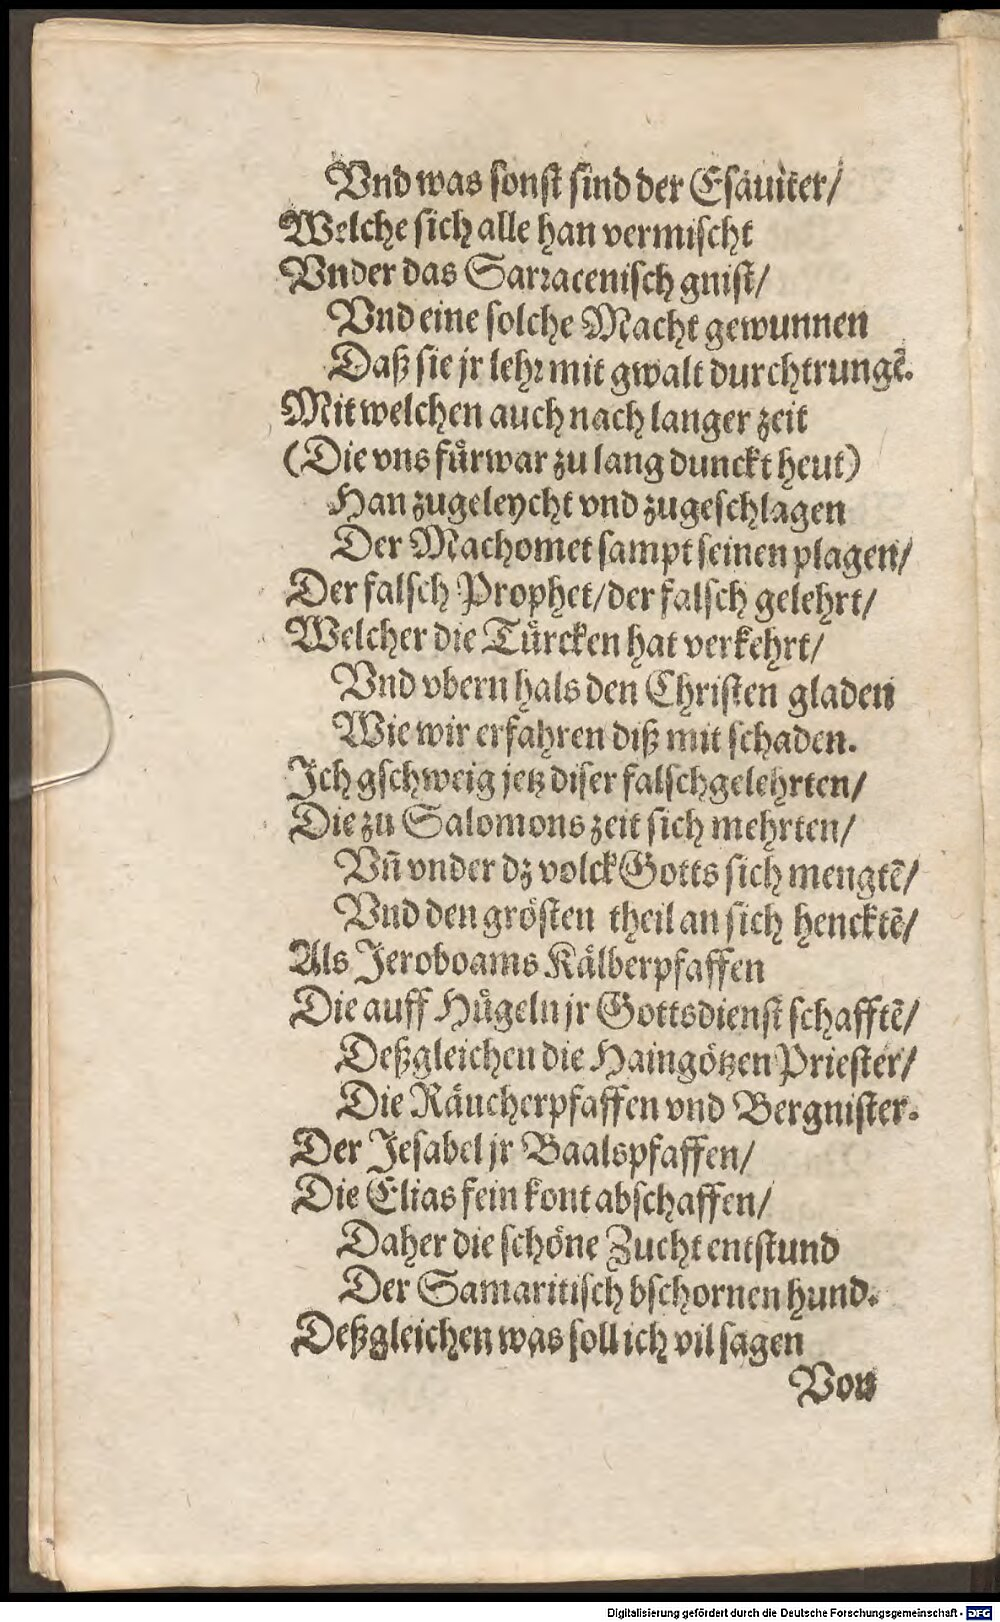 Vnd was sonst sind der Esäuiter/
Welche sich alle han vermischt
Vnder das Sarracenisch gnist/
Vnd eine solche Macht gewunnen
Daß sie jr lehr mit gwalt durchtrungẽ.
Mit welchen auch nach langer zeit
(Die vns fürwar zu lang dunckt heut)
Han zugeleycht vnd zugeschlagen
Der Machomet sampt seinen plagen/
Der falsch Prophet/der falsch gelehrt/
Welcher die Türcken hat verkehrt/
Vnd vbern hals den Christen gladen
Wie wir erfahren diß mit schaden.
Ich gschweig jetz diser falschgelehrten/
Die zu Salomons zeit sich mehrten/
Vñ vnder dz volck Gotts sich mengtẽ/
Vnd den grösten theil an sich hencktẽ/
Als Jeroboams Kälberpfaffen
Die auff Hügeln jr Gottsdienst schafftẽ/
Deßgleichen die Haingötzen Priester/
Die Räucherpfaffen vnd Bergnister.
Der Jesabel jr Baalspfaffen/
Die Elias fein kont abschaffen/
Daher die schöne Zucht entstund
Der Samaritisch bschornen hund.
Deßgleichen was soll ich vil sagen
Von
Digitalisierung gefördert durch die Deutsche Forschungsgemeinschaft - DFG